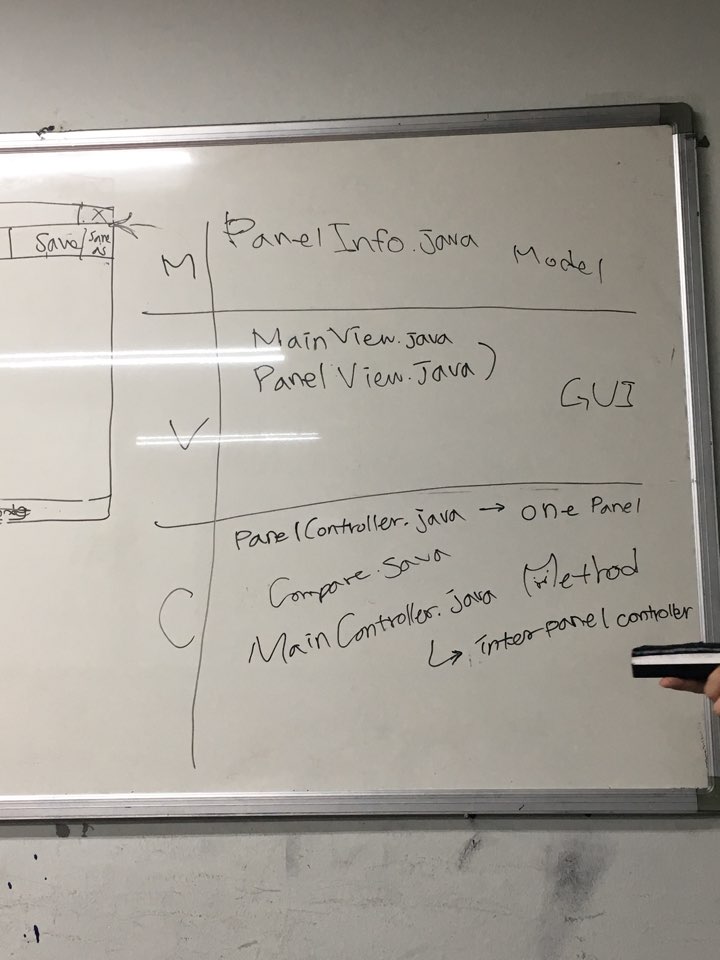 X
Save
Save as
M
PanelInfo.java
Model
MainView.java
PanelView.java
V
GUI
PanelController.java → one Panel
Compare.Sava
C
MainController.java
Method
↳ inter-panel controller